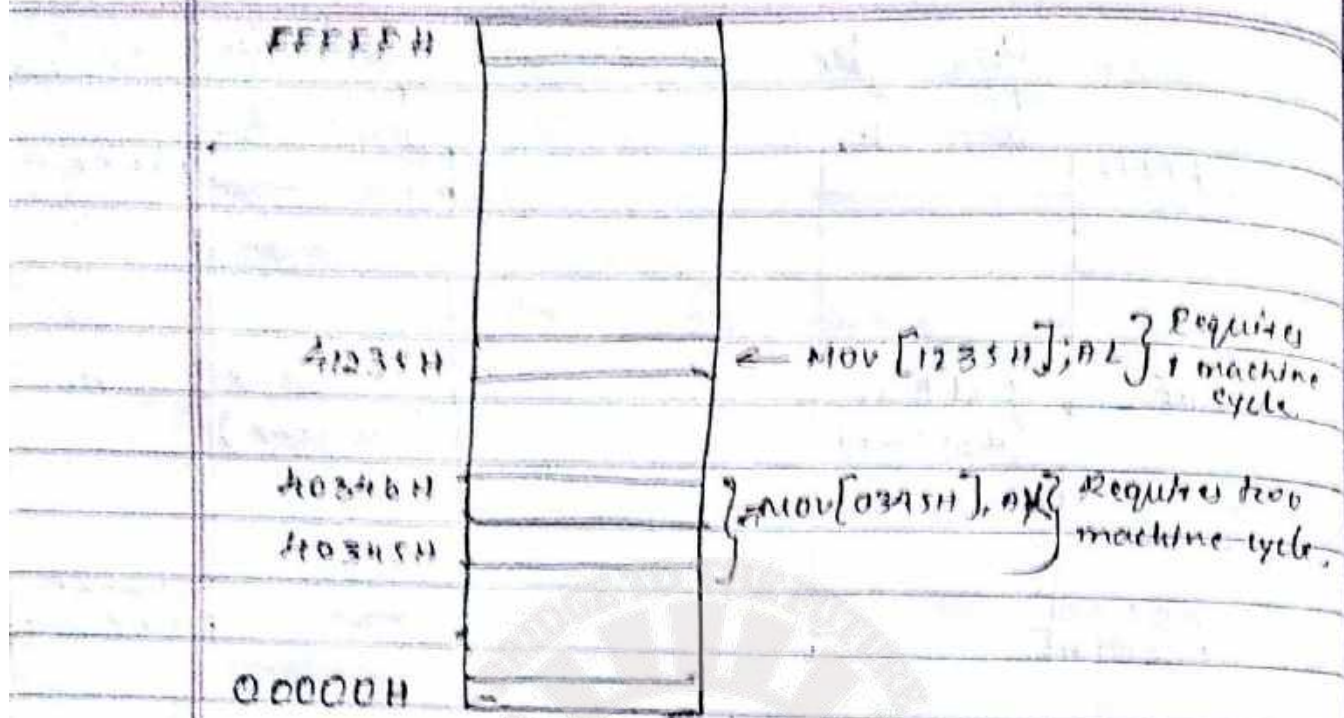 FFFFFH
41235H ← MOV [1235H]; AL } Requires
1 machine
cycle
40346H
40345H } MOV [0345H], AX } Requires two
machine cycle.
00000H